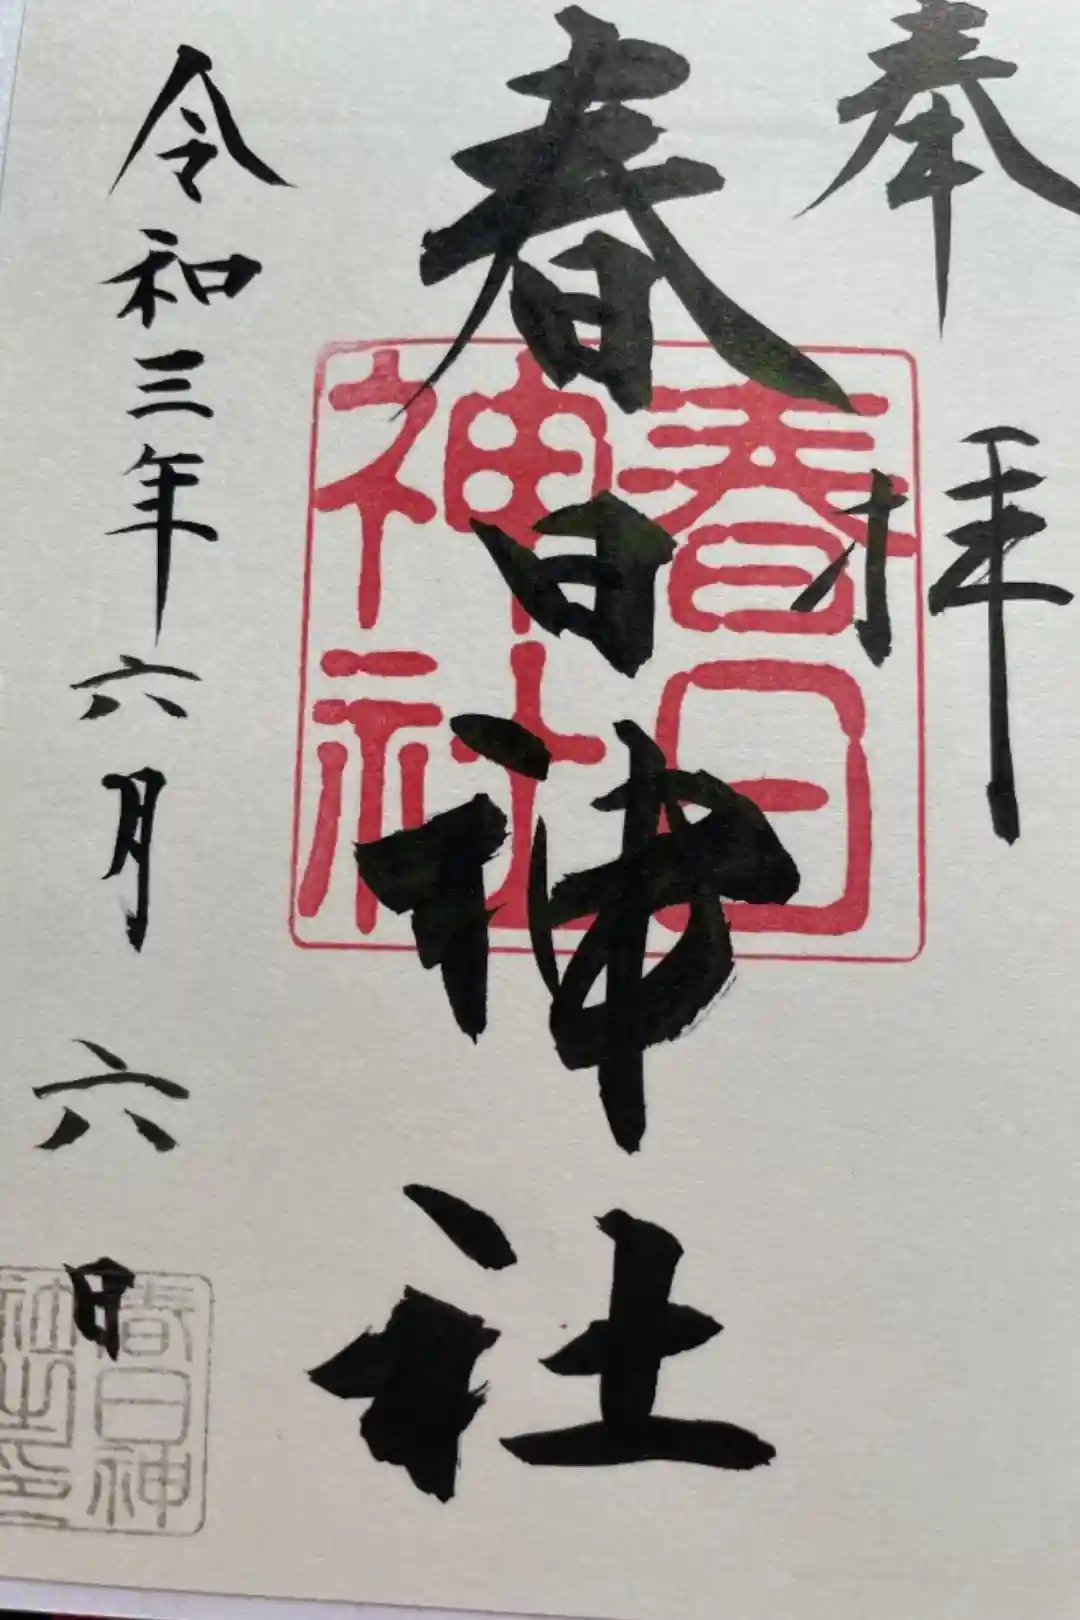 奉拝
春日神社
春日神社
令和三年六月六日
春日神社之印